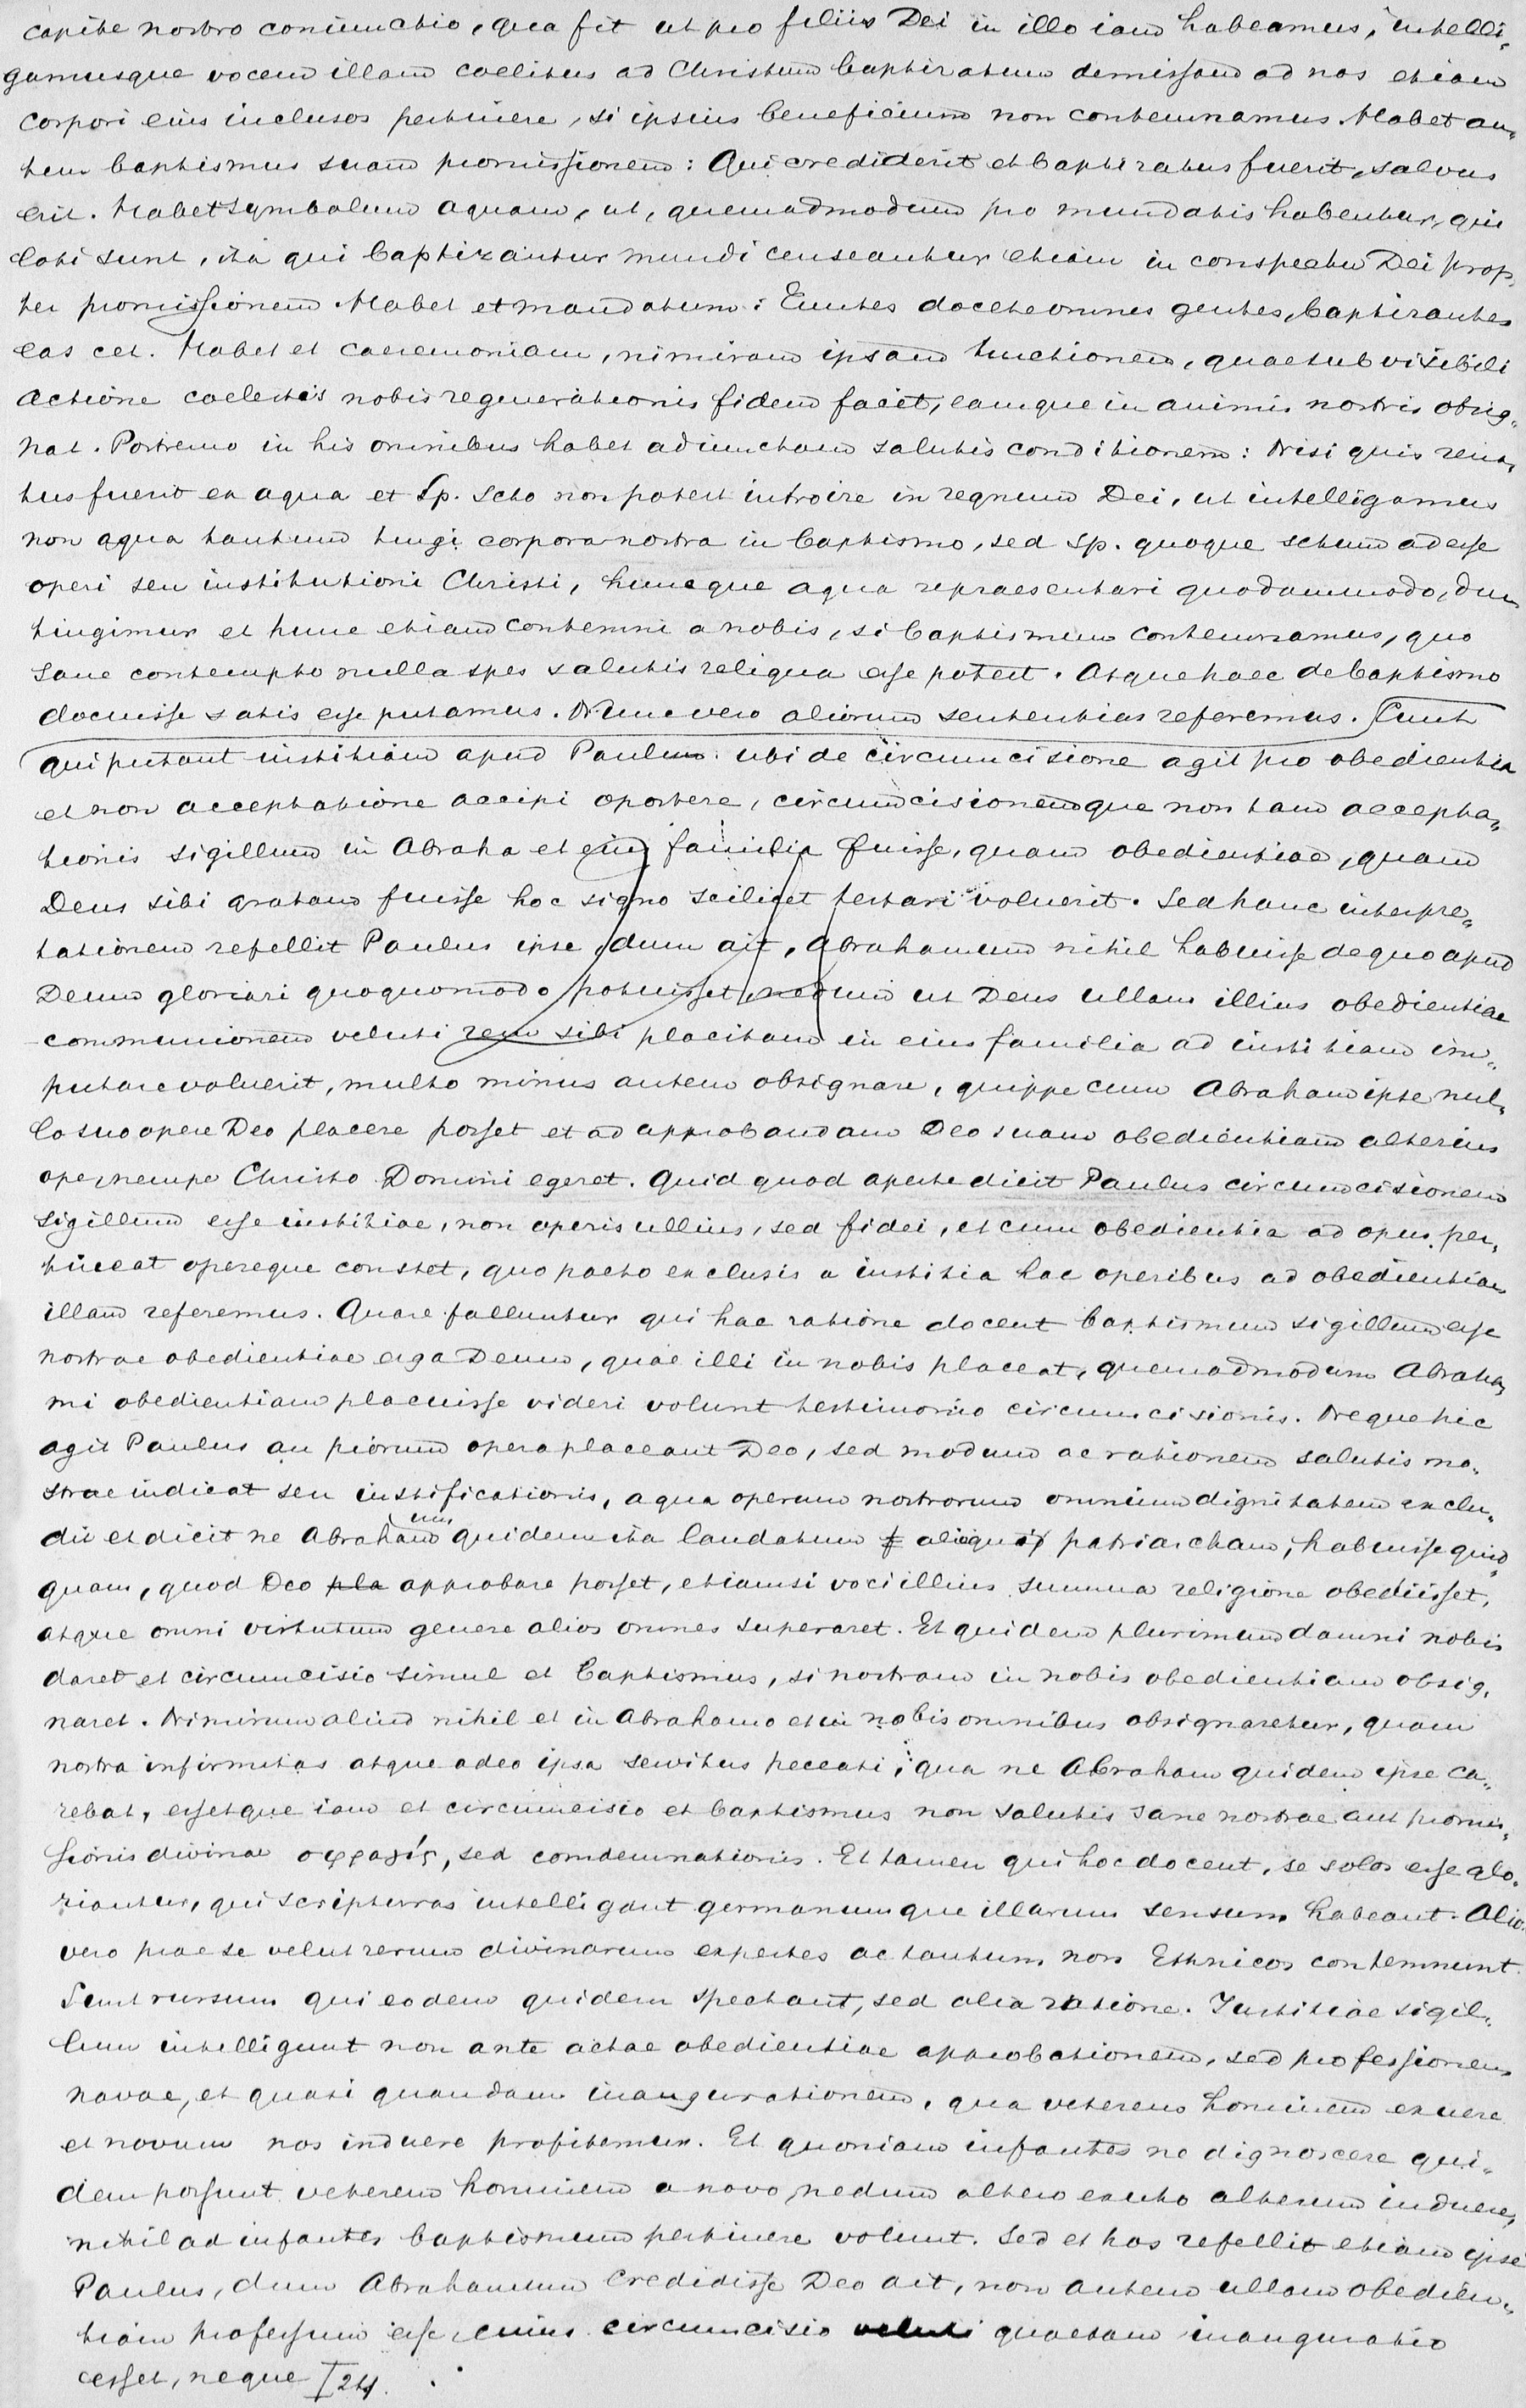 capite nostro coniunctio, qua fit ut pro filiis Dei in illo iam habeamur, intelli-
gamusque vocem illam coelitus ad Christum baptizatum demissam ad nos etiam
corpori eius inclusos pertinere, si ipsius beneficium non contemnamus. Habet au-
tem baptismus suam promissionem: Qui crediderit et baptizatus fuerit, salvus
erit. Habet symbolum aquam, ut, quemadmodum pro mundatis habentur, qui
loti sunt, ita qui baptizantur mundi censeantur etiam in conspectu Dei prop-
ter promissionem. Habet et mandatum: Euntes docete omnes gentes, baptizantes
eas cet. Habet et caeremoniam, nimiram ipsam tinctionem, quae sub visibili
actione coelestis nobis regenerationis fidem facit, eamque in animis nostris obsig-
nat. Postremo in his omnibus habet adiunctam salutis conditionem: Nisi quis rena-
tus fuerit ex aqua et Sp. Scto non potest introire in regnum Dei, ut intelligamus
non aqua tantum tingi corpora nostra in baptismo, sed Sp. quoque sctum adesse
operi seu institutioni Christi, huncque aqua repraesentari quodammodo, dum
tingimur et hunc etiam contemni a nobis, si baptismum contemnamus, quo
sane contempto nulla spes salutis reliqua esse potest. Atque haec de baptismo
docuisse satis esse putamus. Nunc vero aliorum sententias referemus. Sunt
qui putant iustitiam apud Paulum ubi de circumcisione agit pro obedientia
et non acceptatione accipi oportere, circumcisionemque non tam accepta-
tionis sigillum in Abraha et eius familia fuisse, quam obedientiae, quam
Deus sibi gratam fuisse hoc signo scilicet testari voluerit. Sed hanc interpre-
tationem refellit Paulus ipse, dum ait, Abrahamum nihil habuisse de quo apud
Deum gloriari quoquomodo potuisset, nedum ut Deus ullam illius obedientiae
communionem veluti rem sibi placitam in eius familia ad iustitiam im-
putare voluerit, multo minus autem obsignare, quippe cum Abraham ipse nul-
lo suo opere Deo placere posset et ad approbandam Deo suam obedientiam alterius
ope, nempe Christo Domini egeret. Quid quod aperte dicit Paulus circumcisionem
sigillum esse iustitiae, non operis ullius, sed fidei, et cum obedientia ad opus per-
tineat opereque constet, quo pacto exclusis a iustitia hac operibus ad obedientiam
illam referemus. Quare falluntur qui hac ratione docent baptismum sigillum esse
nostrae obedientiae erga Deum, quae illi in nobis placeat, quemadmodum Abraha-
mi obedientiam placuisse videri volunt testimonio circumcisionis. Neque hic
agit Paulus an piorum opera placeant Deo, sed modum ac rationem salutis no-
strae indicat seu iustificationis, a qua operum nostrorum omnium dignitatem exclu-
dit et dicit ne Abrahamum quidem ita laudatum patriarcham, habuisse quid-
quam, quod Deo pla approbare posset, etiamsi voci illius summa religione obediisset,
atque omni virtutum genere alios omnes superaret. Et quidem plurimum damni nobis
daret et circumcisio simul et baptismus, si nostram in nobis obedientiam obsig-
naret. Nimirum aliud nihil et in Abrahamo et in nobis omnibus obsignaretur, quam
nostra infirmitas atque adeo ipsa servitus peccati, qua ne Abraham quidem ipse ca-
rebat, essetque iam et circumcisio et baptismus non salutis sane nostrae aut promis-
sionis divinae σφραγίς, sed comdemnationis. Et tamen qui hoc docent, se solos esse glo-
riantur, qui scripturas intelligant germanumque illarum sensum habeant. Alios
vero prae se velut rerum divinarum expertes ac tantum non Ethnicos contemnunt.
Sunt rursum qui eodem quidem spectant, sed alia ratione. Iustitiae sigil-
lum intelligunt non ante actae obedientiae approbationem, sed professionem
novae, et quasi quandam inaugurationem, qua veterem hominem exuere
et novum nos induere profitemur. Et quoniam infantes ne dignoscere qui-
dem possunt veterem hominem a novo, nedum altero exuto alterum induere,
nihil ad infantes baptismum pertinere volunt. Sed et hos refellit etiam ipse
Paulus, dum Abrahamum credidisse Deo ait, non autem ullam obedien-
tiam professum esse, cuius circumcisio veluti quaedam inauguratio
esset, neque I24.